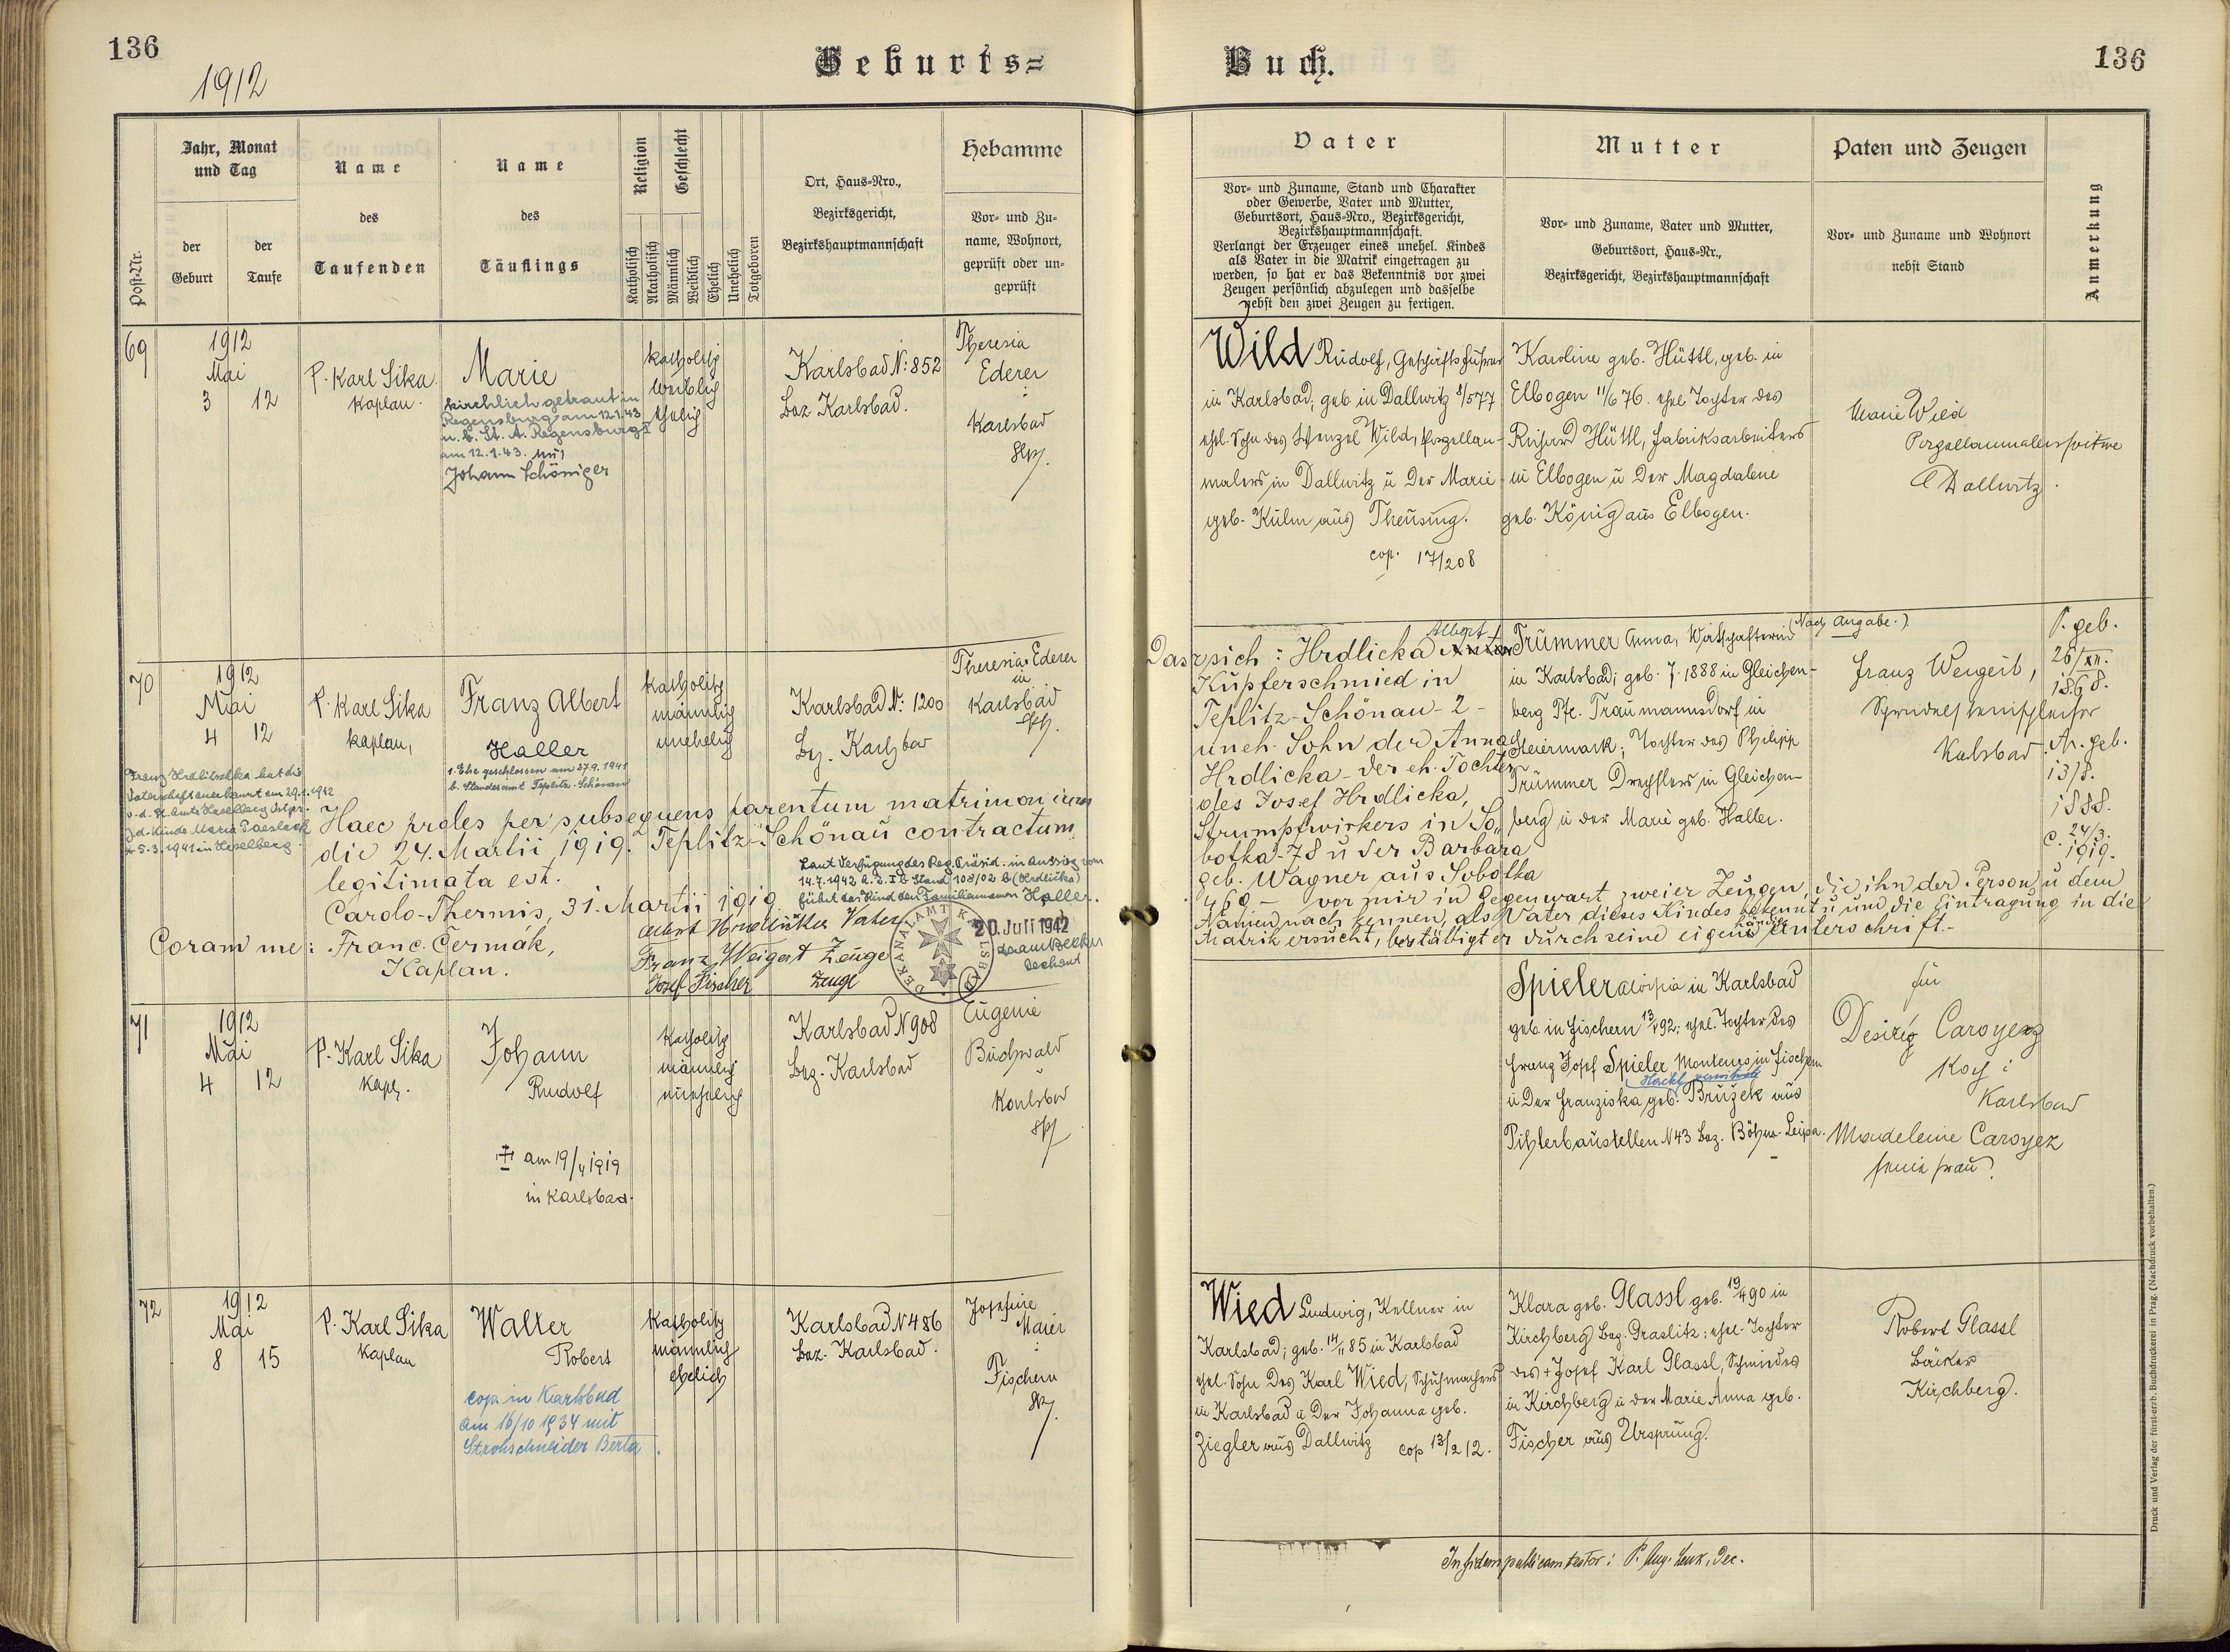 136
1912
Geburts=
Buch.
136
Post=Nr.
Jahr, Monat
und Tag
der
Geburt
der
Taufe
Name
des
Taufenden
Name
des
Täuflings
Religion
Katholisch
Akatholisch
Geschlecht
Männlich
Weiblich
Ehelich
Unehelich
Totgeboren
Ort, Haus=Nro.,
Bezirksgericht,
Bezirkshauptmannschaft
Hebamme
Vor= und Zu=
name, Wohnort,
geprüft oder un=
geprüft
Vater
Vor= und Zuname, Stand und Charakter
oder Gewerbe, Vater und Mutter,
Geburtsort, Haus=Nro., Bezirksgericht,
Bezirkshauptmannschaft.
Verlangt der Erzeuger eines unehel. Kindes
als Vater in die Matrik eingetragen zu
werden, so hat er das Bekenntnis vor zwei
Zeugen persönlich abzulegen und dasselbe
nebst den zwei Zeugen zu fertigen.
Mutter
Vor= und Zuname, Vater und Mutter,
Geburtsort, Haus=Nr.,
Bezirksgericht, Bezirkshauptmannschaft
Paten und Zeugen
Vor= und Zuname und Wohnort
nebst Stand
Anmerkung
69
1912
Mai
3 12
P. Karl Sika
Kaplan.
Marie
kirchlich getraut in
Regensburg am 12.1.43
u. b. St. A. Regensburg I
am 12.1.43. mit
Johann Schöniger
katholisch
weiblich
ehelich
Karlsbad N: 852
Bez. Karlsbad.
Theresia
Ederer
Karlsbad
Wild Rudolf, Geschäftsführer
in Karlsbad; geb. in Dallwitz 8/5 77
ehel. Sohn des Wenzel Wild, Porzellan-
malers in Dallwitz u der Marie
geb. Kulm aus Theusing.
cop. 17/2 08
Karoline geb. Hüttl, geb. in
Elbogen 11/6 76. ehel. Tochter des
Richard Hüttl, Fabriksarbeiters
in Elbogen u der Magdalene
geb. König aus Elbogen.
Marie Wild
Porzellanmalerswitwe
Dallwitz.
70
1912
Mai
4 12
P. Karl Sika
Kaplan,
Franz Albert
Haller
1. Ehe geschlossen am 27.9.1941
b. Standesamt Teplitz-Schönau
Franz Hrdlitschka hat die
Vaterschaft anerkannt am 29.1.1942
v. d. St. Amte Heselberg
z. d. Kinde Maria
* 5.3.1941 in Heselberg.
katholisch
männlich
unehelich
Karlsbad N: 1200
Bz. Karlsbad
Theresia Ederer
in
Karlsbad
Haec proles per subsequens parentum matrimonium
die 24. Martii 1919. Teplitz-Schönau contractum
legitimata est.
Carolo-Thermis, 31. Martii 1919
Coram me: Franc. Čermák,
Kaplan.
Laut Verfügung des Reg. Präsid. in Aussig vom
14.7.1942 A.Z. I b Stand 108/02 b (Hrdlička)
führt das Kind den Familiennamen Haller.
Albert Hrdlička Vater
Franz Weigert Zeuge
Josef Fischer Zeuge
DEKANALAMT KARLSBAD
20. Juli 1942
Dechant
Dass sich: Hrdlicka Albert
Kupferschmied in
Teplitz-Schönau - 2 -
uneh. Sohn der Anna
Hrdlicka - der eh. Tochter
des Josef Hrdlicka,
Strumpfwirkers in So-
botka - 78 u der Barbara
geb. Wagner aus Sobotka
469 - vor mir in Gegenwart zweier Zeugen, die ihn der Person u dem
Namen nach kennen, als Vater dieses Kindes bekennt u um die Eintragung in die
Matrik ersucht, bestätigt er durch seine eigenhändige Unterschrift.-
(Nach Angabe.)
Trummer Anna, Wirtschafterin
in Karlsbad; geb. 7. 1888 in Gleichen-
berg Pfe. Traumannsdorf in
Steiermark; Tochter des Philipp
Trummer Drechslers in Gleichen-
berg u der Marie geb. Haller.
Franz Weigert,
Sprudelsteinschleifer
Karlsbad
P. geb.
26/XII.
1868.
M. geb.
13/8.
1888.
C. 24/3.
1919.
71
1912
Mai
4 12
P. Karl Sika
Kapl.
Johann
Rudolf
am 19/4 1919
in Karlsbad.
Katholisch
männlich
unehelich
Karlsbad N 908
Bez. Karlsbad
Eugenie
Buchwald
Karlsbad
Spieler Aloisia in Karlsbad
geb. in Fischern 13/ 92; ehel. Tochter des
Franz Josef Spieler, Monteurs in Fischern
u der Franziska geb. Bružek aus
N 43 Bez. Böhm. Leipa.
für
Desiré Caroyez
Koch i
Karlsbad
Madeleine Caroyez
seine Frau
72
1912
Mai
8 15
P. Karl Sika
Kaplan
Walter
Robert
cop. in Karlsbad
am 16/10 1934 mit
Strohschneider Berta.
Katholisch
männlich
ehelich
Karlsbad N 486
Bez. Karlsbad.
Josefine
Maier
Fischern
Wied Ludwig, Kellner in
Karlsbad; geb. 14/11 85 in Karlsbad
ehel. Sohn des Karl Wied, Schuhmachers
in Karlsbad u der Johanna geb.
Ziegler aus Dallwitz cop 13/2 12.
Klara geb. Glassl geb. 19/4 90 in
Kirchberg Bez. Graslitz; ehel. Tochter
des + Josef Karl Glassl, Schmiedes
in Kirchberg u der Marie Anna geb.
Fischer aus Ursprung.
Robert Glassl
Bäcker
Kirchberg.
In fidem publicam testor: P. Aug. Dec.
Druck und Verlag der fürst-erzb. Buchdruckerei in Prag. (Nachdruck vorbehalten.)